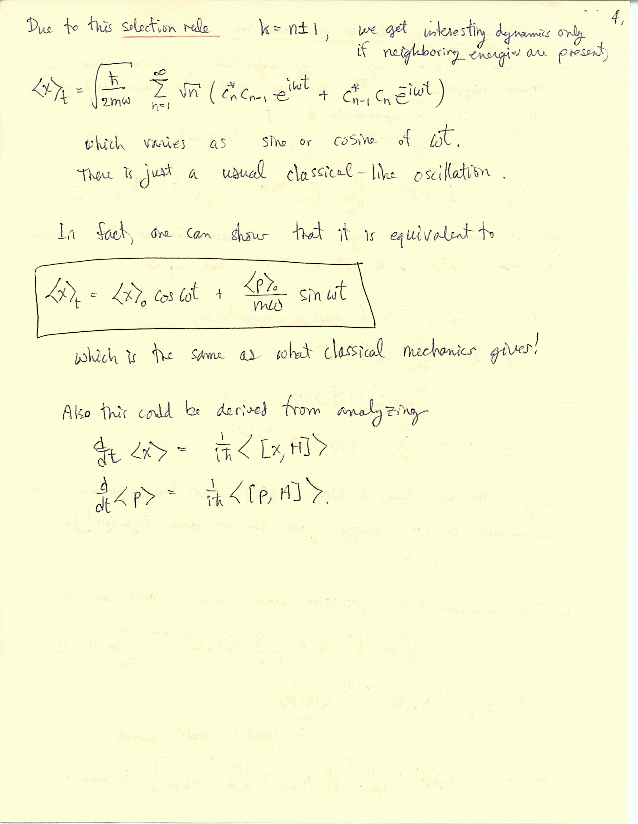 4.
Due to this selection rule k = n±1, we get interesting dynamics only
if neighboring energies are present,
⟨x⟩t = √(ħ/2mω) ∑_{n=1}^{∞} √n ( c*_n c_{n-1} e^{iωt} + c*_{n-1} c_n e^{-iωt} )
which varies as sine or cosine of ωt.
There is just a usual classical-like oscillation.
In fact, one can show that it is equivalent to
⟨x⟩t = ⟨x⟩₀ cos ωt + ⟨p⟩₀/mω sin ωt
which is the same as what classical mechanics gives!
Also this could be derived from analyzing
d/dt ⟨x⟩ = 1/iħ ⟨[x, H]⟩
d/dt ⟨p⟩ = 1/iħ ⟨[p, H]⟩.